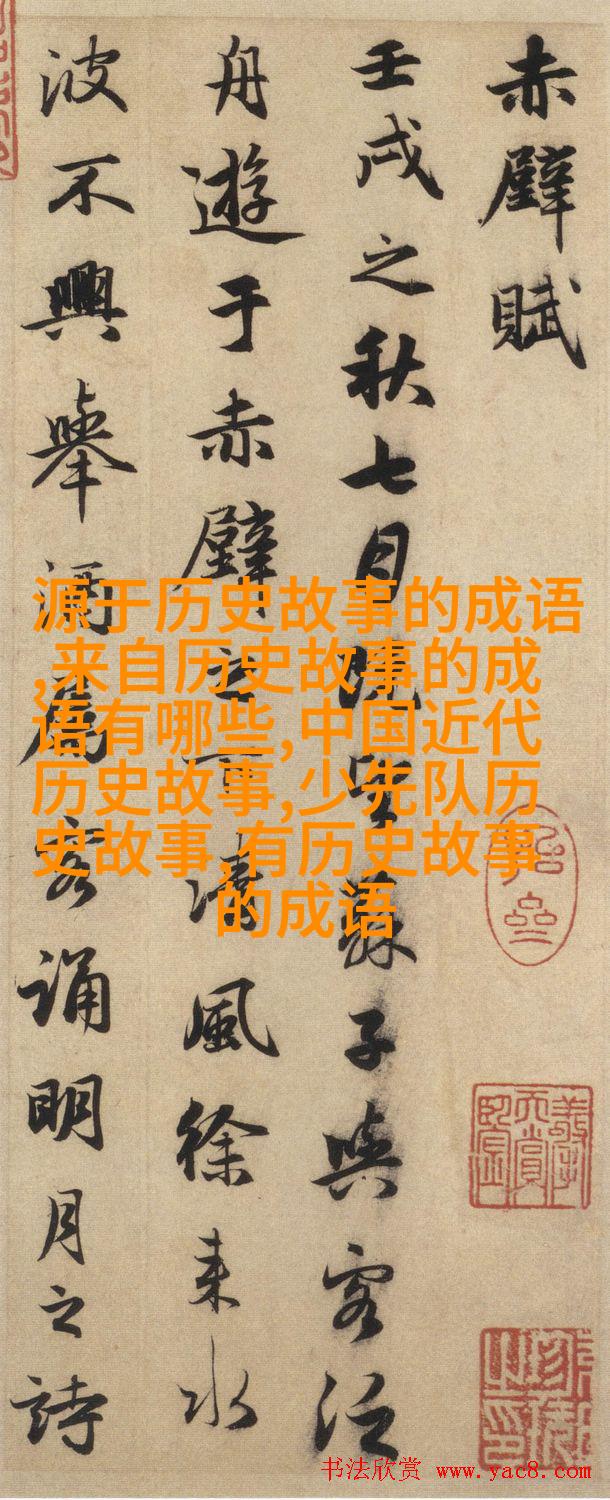 赤壁賦
壬戌之秋七月既望蘇子與客泛
舟遊于赤壁之下清風徐来水
波不興舉酒屬客誦明月之詩
源于历史故事的成语
,来自历史故事的成
语有哪些,中国近代
历史故事,少先队历
史故事,有历史故事
的成语
书法欣赏 www.yac8.com